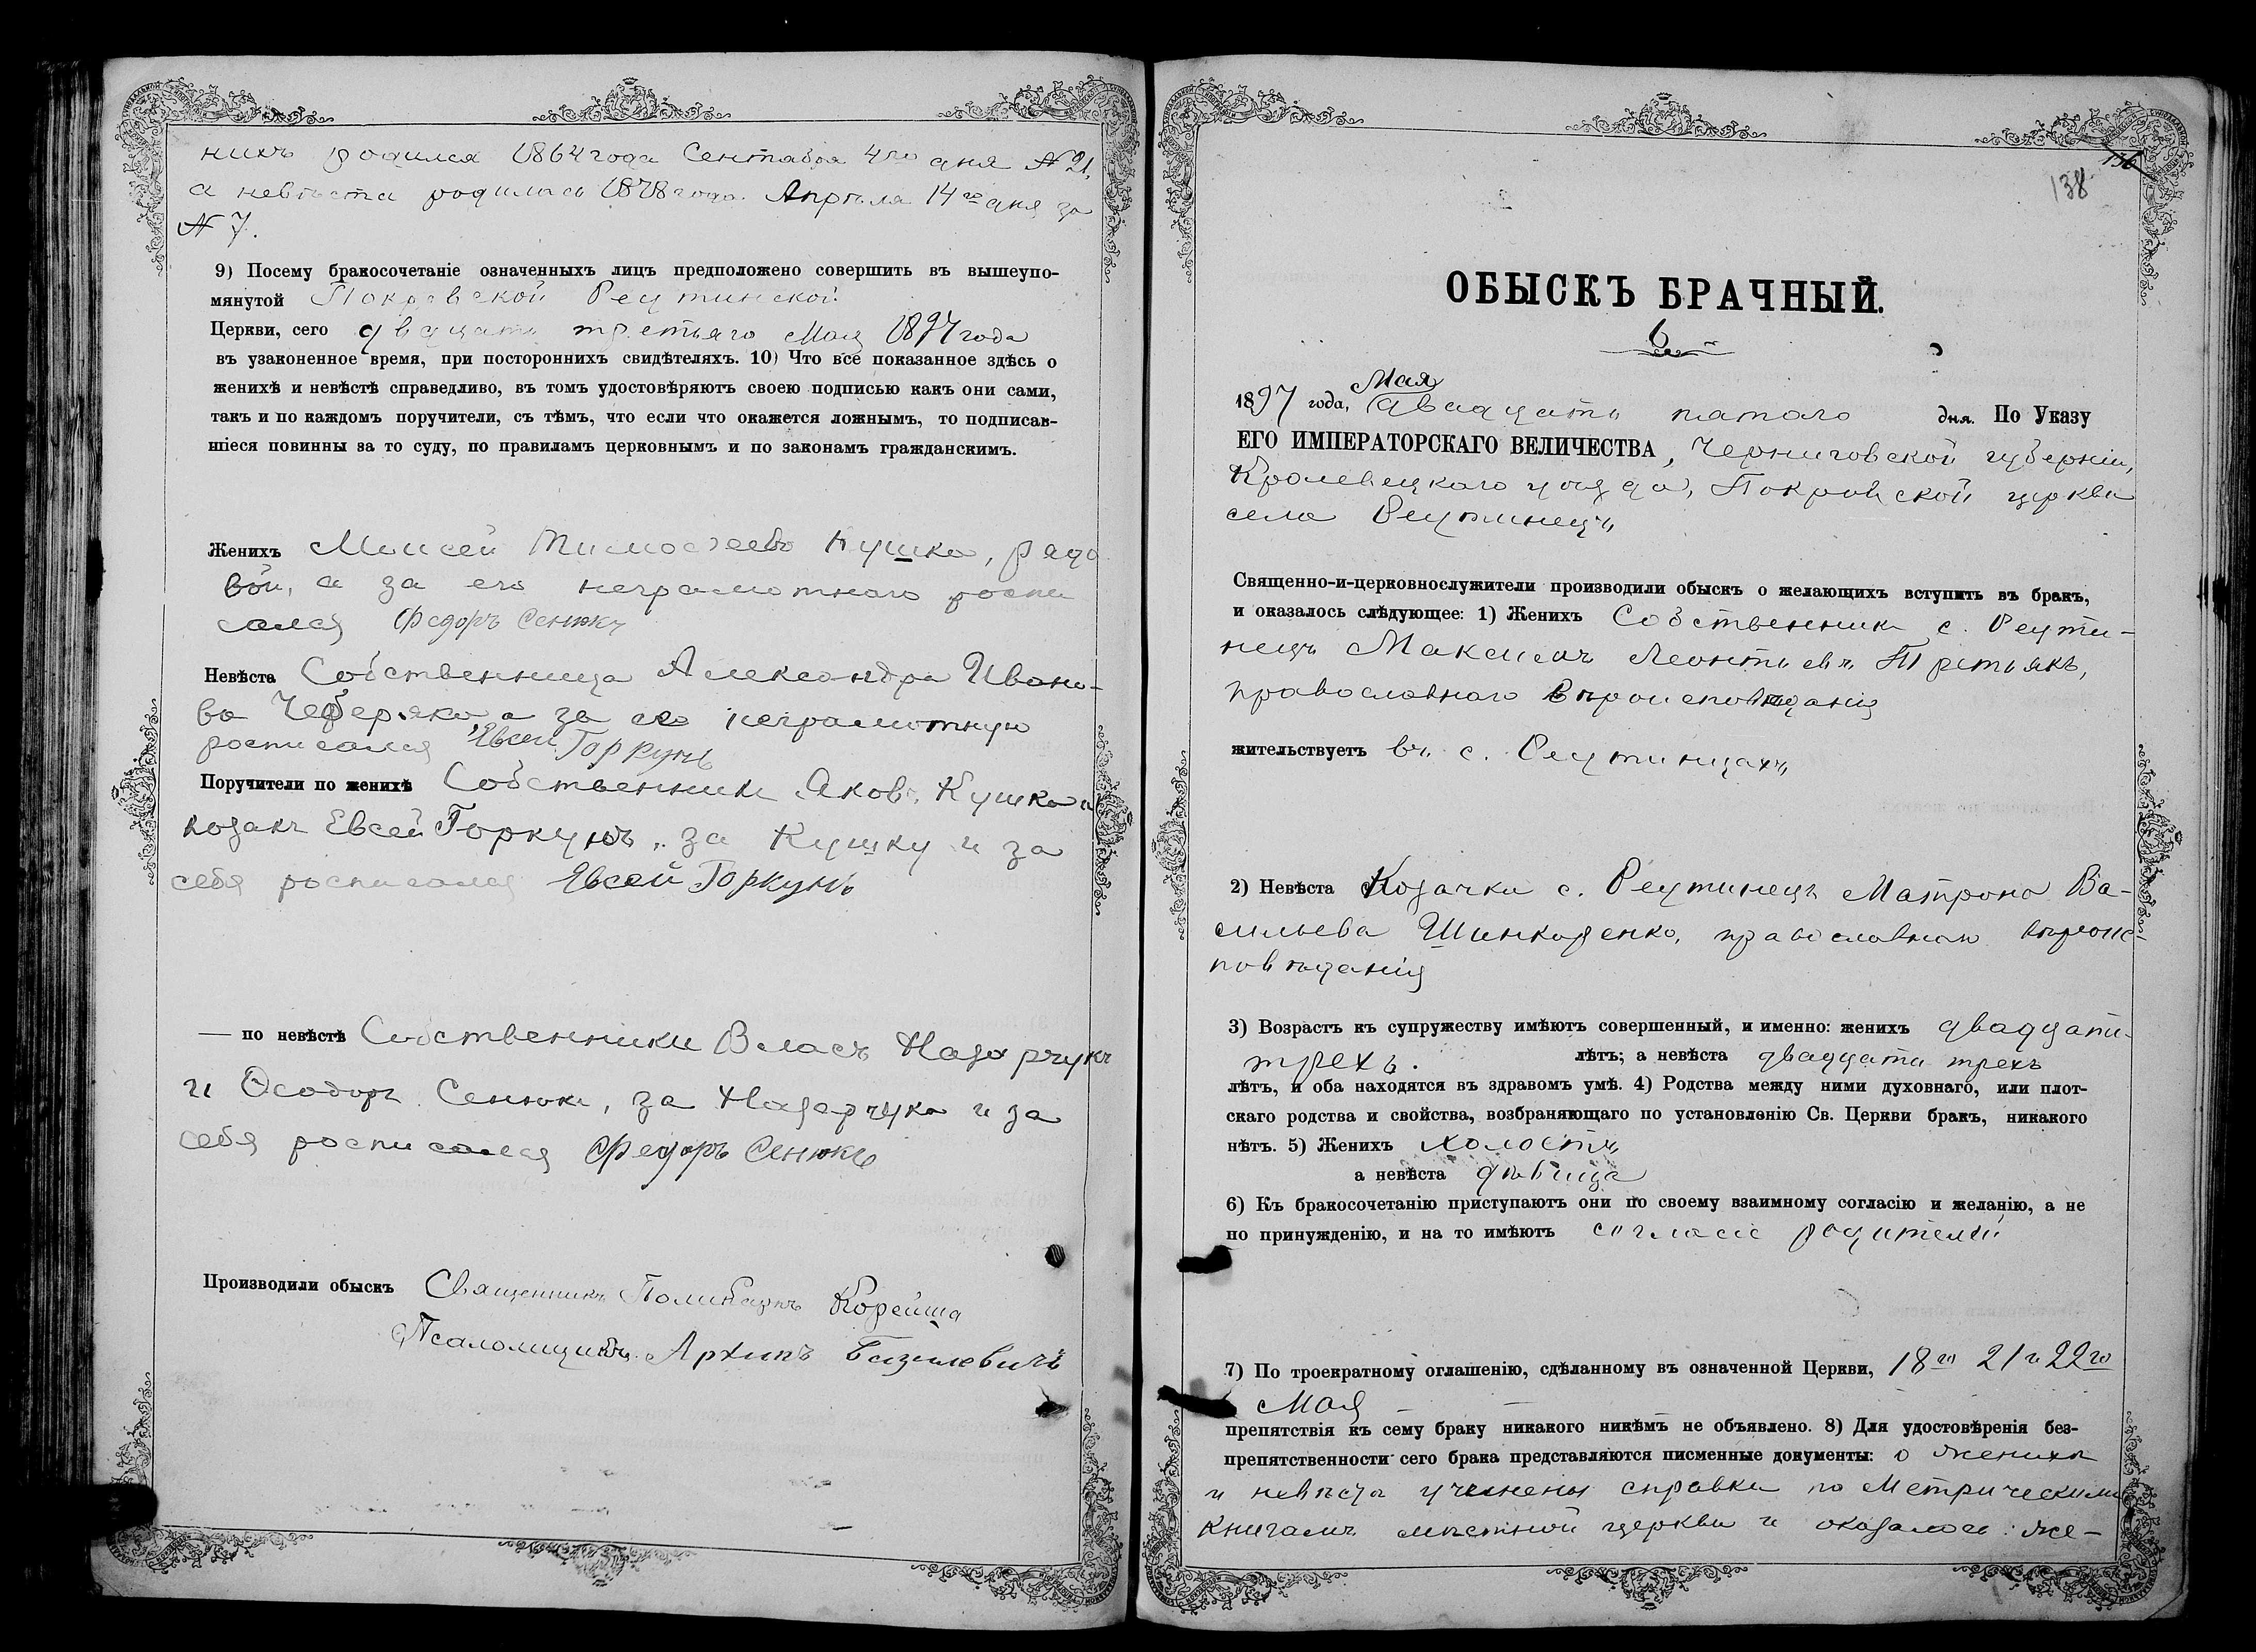 нихъ родился 1864 года Сентября 4го дня № 21,
а невѣста родилась 1878 года Апрѣля 14го дня за
№ 7.
9) Посему бракосочетаніе означенныхъ лицъ предположено совершить въ вышеупо-
мянутой Покровской Реутинской
Церкви, сего двадцать третьяго Мая 1897 года
въ узаконенное время, при постороннихъ свидѣтеляхъ. 10) Что все показанное здѣсь о
женихѣ и невѣстѣ справедливо, въ томъ удостовѣряютъ своею подписью какъ они сами,
такъ и по каждомъ поручители, съ тѣмъ, что если что окажется ложнымъ, то подписав-
шіеся повинны за то суду, по правиламъ церковнымъ и по законамъ гражданскимъ.
Женихъ Моисей Тимоѳеевъ Кушка, рядо
вой, а за его неграмотнаго роспи
сался Федоръ Сенюкъ
Невѣста Собственница Александра Ивано-
ва а за ея неграмотную
росписался Евсей Горкунъ
Поручители по женихѣ Собственники Яковъ Кушка и
козакъ Евсей Горкунъ, за Кушку и за
себя росписался Евсей Горкунъ
— по невѣстѣ Собственники Власъ Назарчукъ
и Ѳеодоръ Сенюкъ, за Назарчука и за
себя росписался Федоръ Сенюкъ
Производили обыскъ Священникъ Поликарпъ Корейша
Псаломщикъ Архипъ Базилевичъ
136
138
ОБЫСКЪ БРАЧНЫЙ.
6
Мая
1897 года, двадцать пятаго дня. По Указу
ЕГО ИМПЕРАТОРСКАГО ВЕЛИЧЕСТВА, Черниговской губерніи,
Кролевецкаго уѣзда, Покровской церкви
села Реутинецъ
Священно-и-церковнослужители производили обыскъ о желающихъ вступить въ бракъ,
и оказалось слѣдующее: 1) Женихъ Собственникъ с. Реути-
нецъ Максимъ Леонтьевъ Третьякъ,
православнаго вѣроисповѣданія
жительствуетъ въ с. Реутинцахъ
2) Невѣста Козачка с. Реутинецъ Матрона Ва-
сильева Шинкаренко, православнаго вѣроис
повѣданія
3) Возрастъ къ супружеству имѣютъ совершенный, и именно: женихъ двадцати-
трехъ. лѣтъ; а невѣста двадцати трехъ
лѣтъ, и оба находятся въ здравомъ умѣ. 4) Родства между ними духовнаго, или плот-
скаго родства и свойства, возбраняющаго по установленію Св. Церкви бракъ, никакого
нѣтъ. 5) Женихъ холостъ
а невѣста дѣвица
6) Къ бракосочетанію приступаютъ они по своему взаимному согласію и желанію, а не
по принужденію, и на то имѣютъ согласіе родителей
7) По троекратному оглашенію, сдѣланному въ означенной Церкви, 18го 21 и 22го
Мая
препятствія къ сему браку никакого никѣмъ не объявлено. 8) Для удостовѣренія без-
препятственности сего брака представляются писменные документы: о женихѣ
и невѣстѣ учинены справки по Метрическимъ
книгамъ мѣстной церкви и оказалось: же-